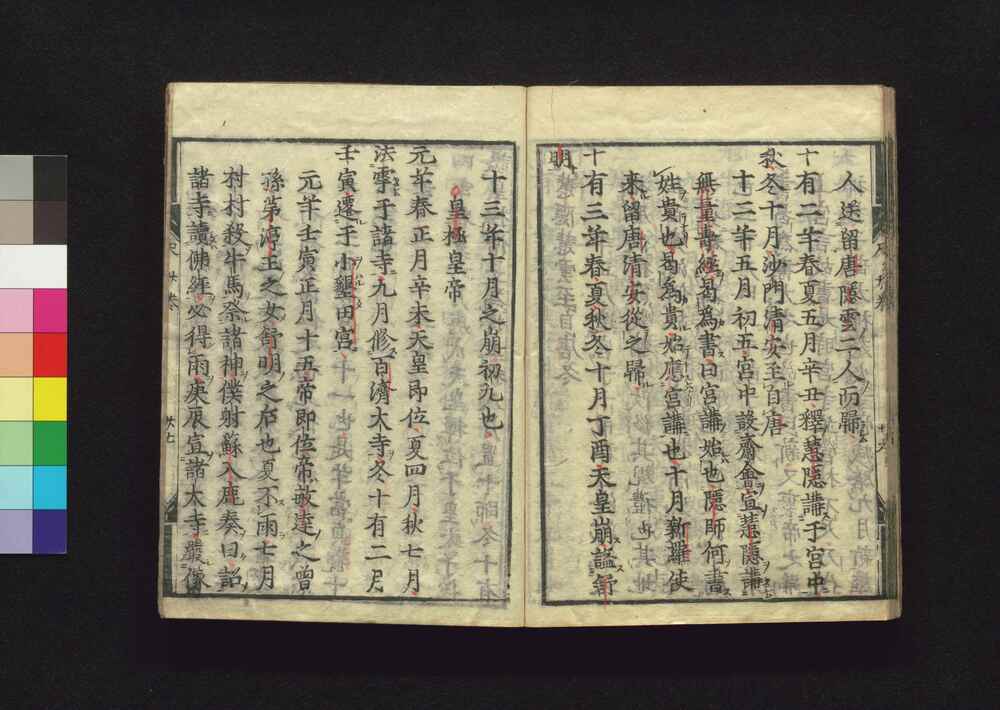 人送留唐隱雲二人而歸
十有二年春夏五月辛丑釋慧隱講于宮中
秋冬十月沙門清安至自唐
十二年五月初五宮中設齋會宣慧隱講
無量壽經曷為書曰宮講始也隱師何書
姓貴也曷為貴始應宮講也十月新羅使
來留唐清安從之歸
十有三年春夏秋冬十月丁酉天皇崩謚舒
明
十三年十月之崩初九也
皇極皇帝
元年春正月辛未天皇即位夏四月秋七月
法雩于諸寺九月修百濟大寺冬十有二月
壬寅遷于小墾田宮
元年壬寅正月十五帝即位帝敏達之曾
孫第渟王之女舒明之后也夏不雨七月
村村殺牛馬祭諸神僕射蘇入鹿奏曰詔
諸寺讀佛經必得雨庚辰宣諸大寺嚴像